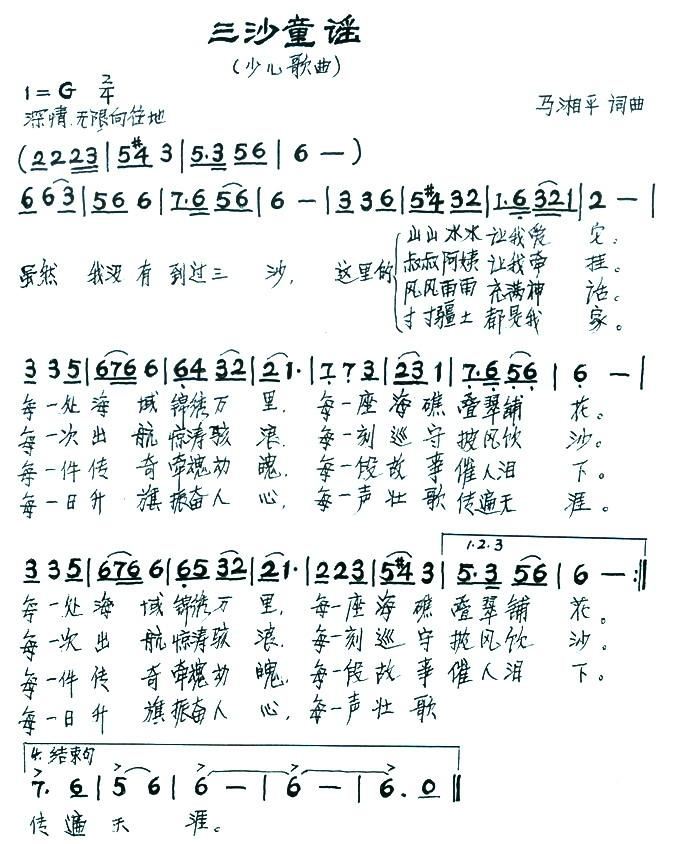 三沙童谣
(少儿歌曲)
1=G 2/4
深情、无限向往地
马湘平 词曲
(2 2 2 3 | 5 #4 3 | 5. 3 5 6 | 6 — )
6 6 3 | 5 6 6 | 7. 6 5 6 | 6 — | 3 3 6 | 5 #4 3 2 | 1. 6 3 2 1 | 2 — |
山山水水让我爱它。
虽然 我没有到过三沙, 这里的 叔叔阿姨让我牵挂。
风风雨雨充满神话。
寸寸疆土都是我家。
3 3 5 | 6 7 6 6 | 6 4 3 2 | 2 1. | 7 7 3 | 2 3 1 | 7. 6 5 6 | 6 — |
每一处海域锦绣万里, 每一座海礁叠翠铺花。
每一次出航惊涛骇浪, 每一刻巡守披风饮沙。
每一件传奇牵魂动魄, 每一段故事催人泪下。
每一日升旗振奋人心, 每一声壮歌传遍天涯。
1.2.3
3 3 5 | 6 7 6 6 | 6 5 3 2 | 2 1. | 2 2 3 | 5 #4 3 | 5. 3 5 6 | 6 — :||
每一处海域锦绣万里, 每一座海礁叠翠铺花。
每一次出航惊涛骇浪, 每一刻巡守披风饮沙。
每一件传奇牵魂动魄, 每一段故事催人泪下。
每一日升旗振奋人心, 每一声壮歌
4. 结束句
7. 6 | 5 6 | 6 — | 6 — | 6. 0 ||
传遍天涯。